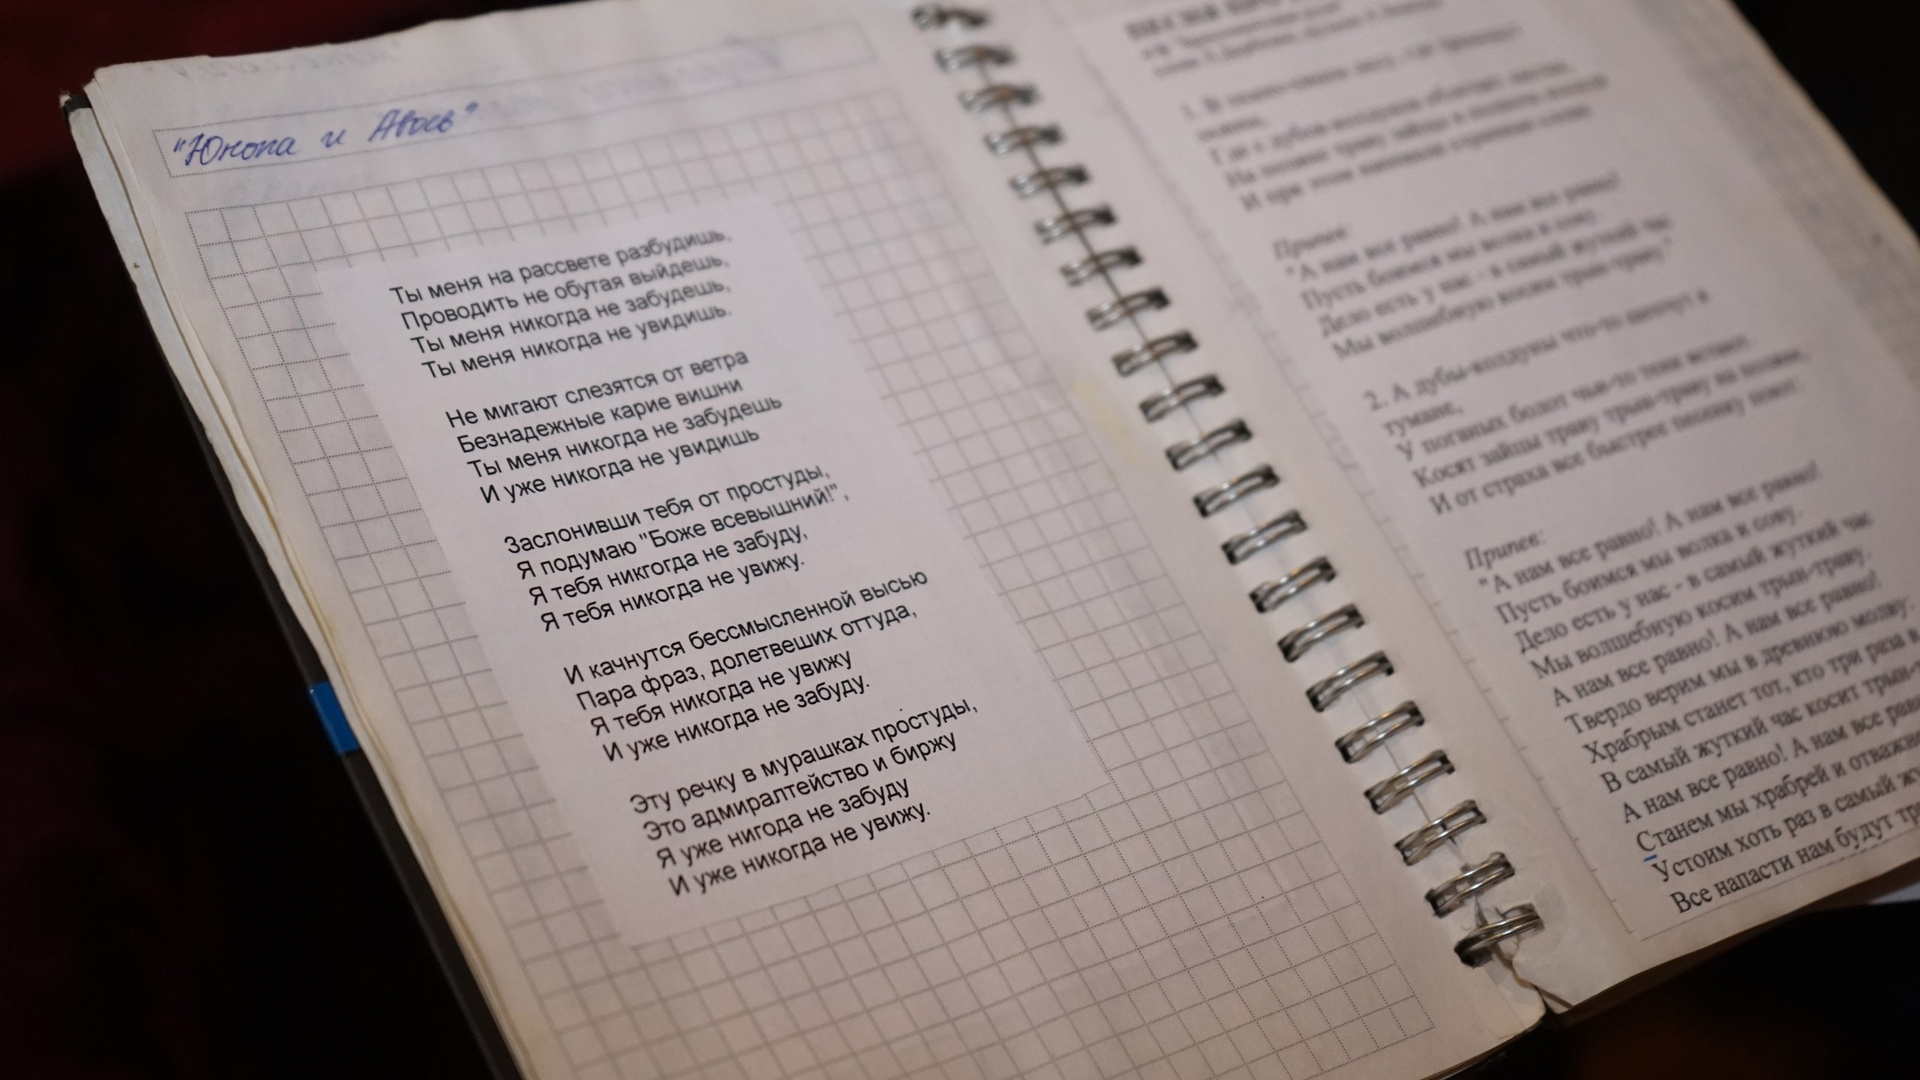 "Юнона и Авось"
Ты меня на рассвете разбудишь,
Проводить не обутая выйдешь,
Ты меня никогда не забудешь,
Ты меня никогда не увидишь.
Не мигают слезятся от ветра
Безнадежные карие вишни
Ты меня никогда не забудешь
И уже никогда не увидишь
Заслонивши тебя от простуды,
Я подумаю "Боже всевышний!" ,
Я тебя никгогда не забуду,
Я тебя никогда не увижу.
И качнутся бессмысленной высью
Пара фраз, долетвеших оттуда,
Я тебя никогда не увижу
И уже никогда не забуду.
Эту речку в мурашках простуды,
Это адмиралтейство и биржу
Я уже нигода не забуду
И уже никогда не увижу.
Припев:
"А нам все равно! А нам все равно!
Пусть боимся мы волка и сову.
Дело есть у нас - в самый жуткий час
Мы волшебную косим трын-траву!
2. А дубы-колдуны что-то шепчут в
тумане,
У поганых болот чьи-то тени встают.
Косят зайцы траву трын-траву на поляне,
И от страха все быстрее песенку поют:
Припев:
"А нам все равно! А нам все равно!
Пусть боимся мы волка и сову.
Дело есть у нас - в самый жуткий час
Мы волшебную косим трын-траву.
А нам все равно! А нам все равно!
Твердо верим мы в древнюю молву:
Храбрым станет тот, кто три раза в
В самый жуткий час косит трын-
А нам все равно! А нам все
Станем мы храбрей и
Устоим хоть раз в самый
Все напасти нам будут